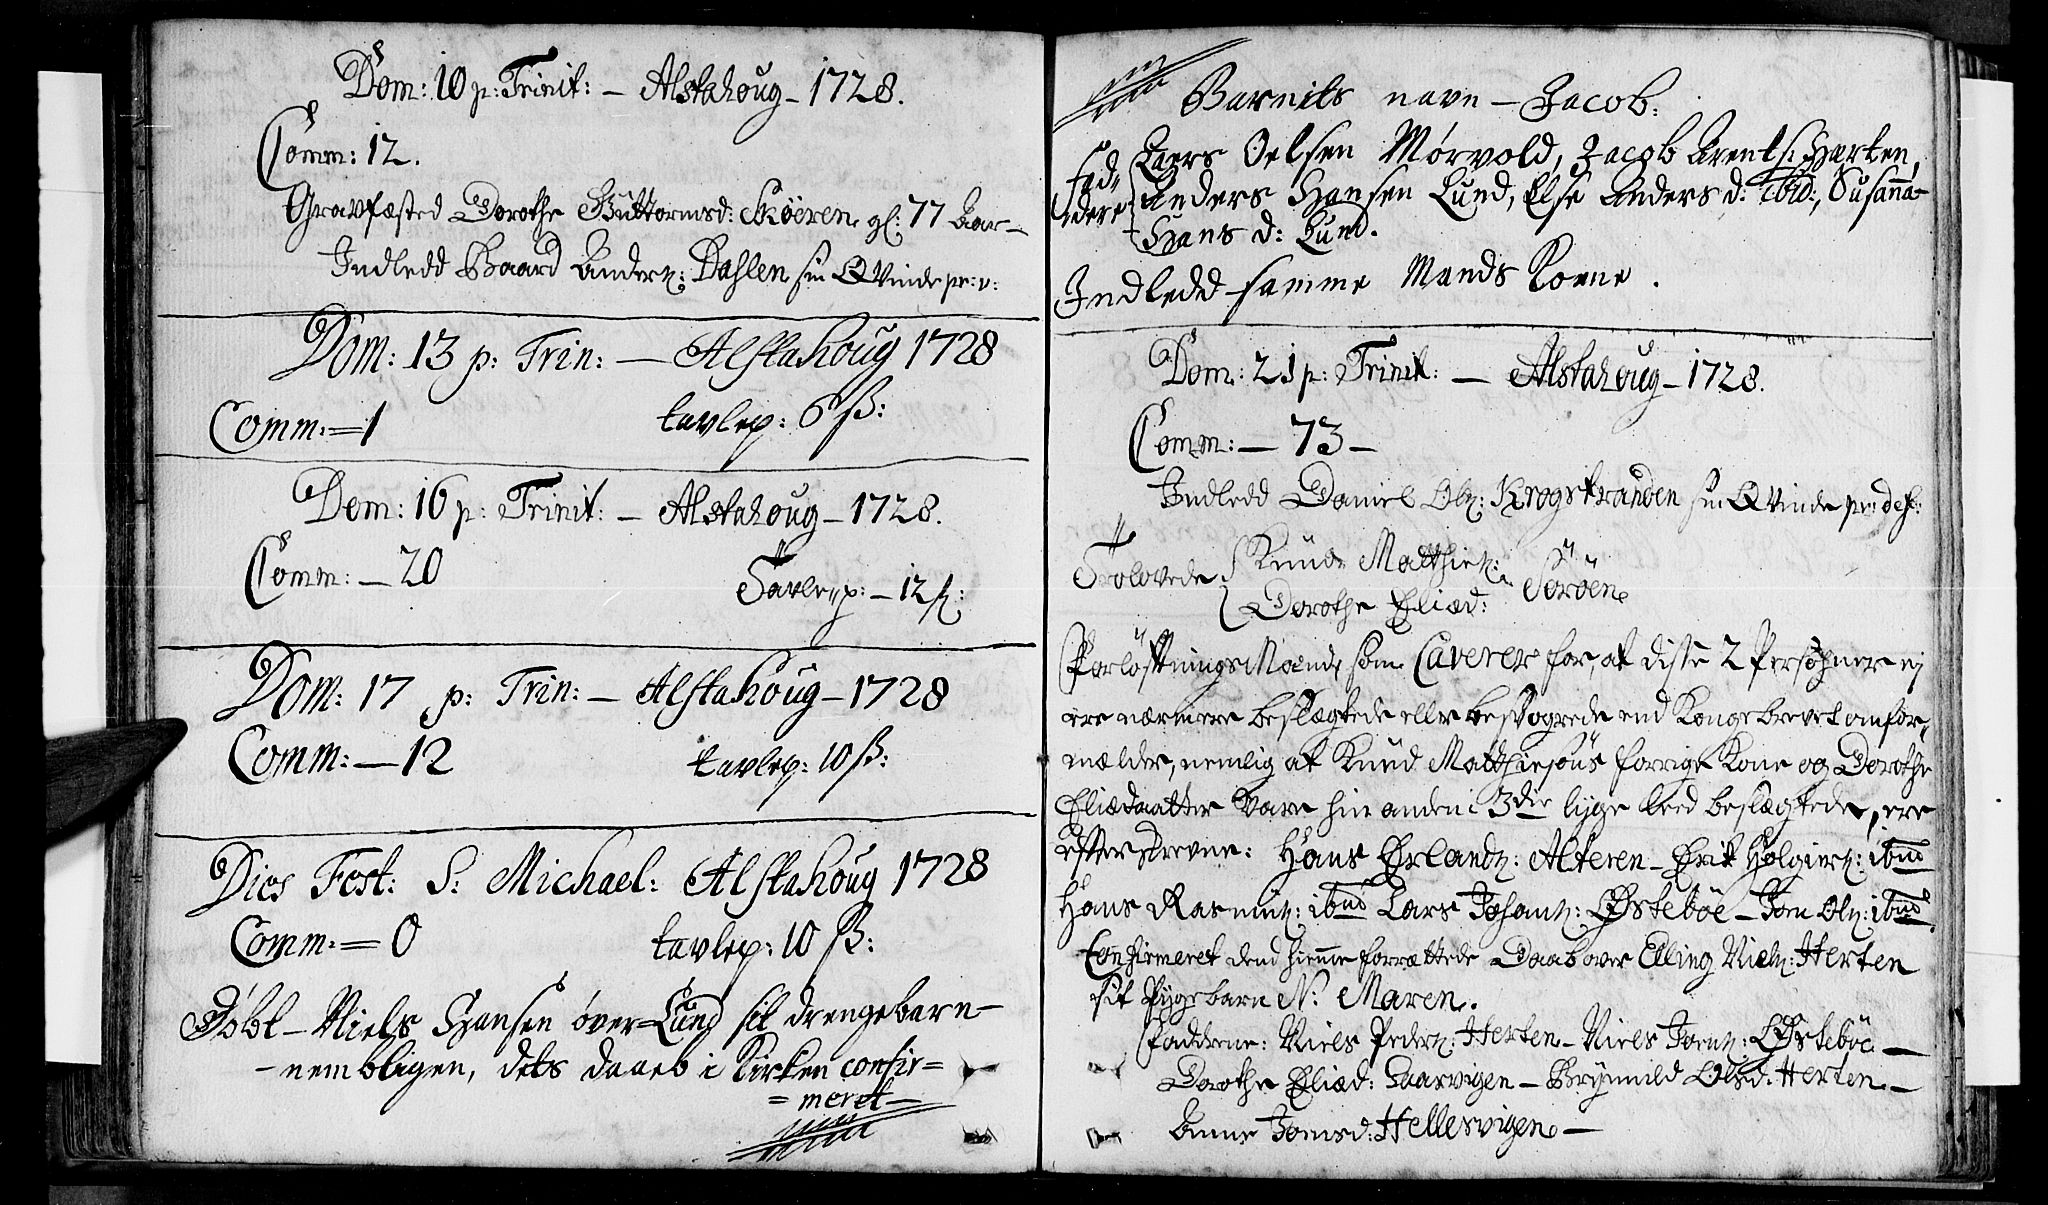 Dom: 10 p: Trinit: – Alstahoug – 1728.
Comm: 12.
Gravfæsted Dorothe Guttormsd: Skøeren gl: 77 Aar –
Indledd Baard Anders: Dahlen sin Qvinde pr: v:
Dom: 13 p: Trin: – Alstahoug 1728
Comm: = 1 tavlep: 6 ß:
Dom: 16 p: Trinit: – Alstahoug – 1728.
Comm: – 20 Tavlep: – 12 ß:
Dom: 17 p: Trin: – Alstahoug – 1728
Comm: – 12 tavlep: 10 ß:
Dies Fest: S: Michael: Alstahoug 1728
Comm: = 0 tavlep: 10 ß:
Døbt – Niels Hansen øver = Lund sit drengebarn –
– nembligen, dets daab i Kirken confir=
= meret –
Barnits navn – Jacob:
Fad=
dere
Laers Oelsen Mørvold, Jacob Arents: Hærten,
Anders Hansen Lund, Else Anders d: ibid:, Susanna
Hans d: Lund.
Indledd samme Mands Kone.
Dom: 21 p: Trinit: – Alstahoug – 1728.
Comm: – 73 –
Indledd Daniel Ols: Krogstranden sin Qvinde pr: def:
Trolovede Knud Matthies:
Dorothe Eliæd: Sørøen
Forløftnings Mænd, som Caverer for, at disse 2 Persohner ej
ere nærmere beslægtede eller besvogrede end Kongebrevet omfor=
mælder, nemlig at Knud Matthiesøns forrige Kone og Dorothe
Eliædaatter vare hinanden i 3die lige leed beslægtede, ere
efterskrevne: Hans Erlands: Alteren – Erik Holgiers: ibid
Hans Rasmus: ibid Lars Johans: Østebøe – Jon Ols: ibid.
Confirmeret dend hiemme forrættede Daab over Elling Niels: Herten
sit Pygebarn N: Maren.
Faddrene: Niels Peders: Herten – Niels Jons: Østebøe –
Dorothe Eliæd: Haarvigen – Brynnild Olsd: Herten –
Anne Jonsd: Hellesvigen –